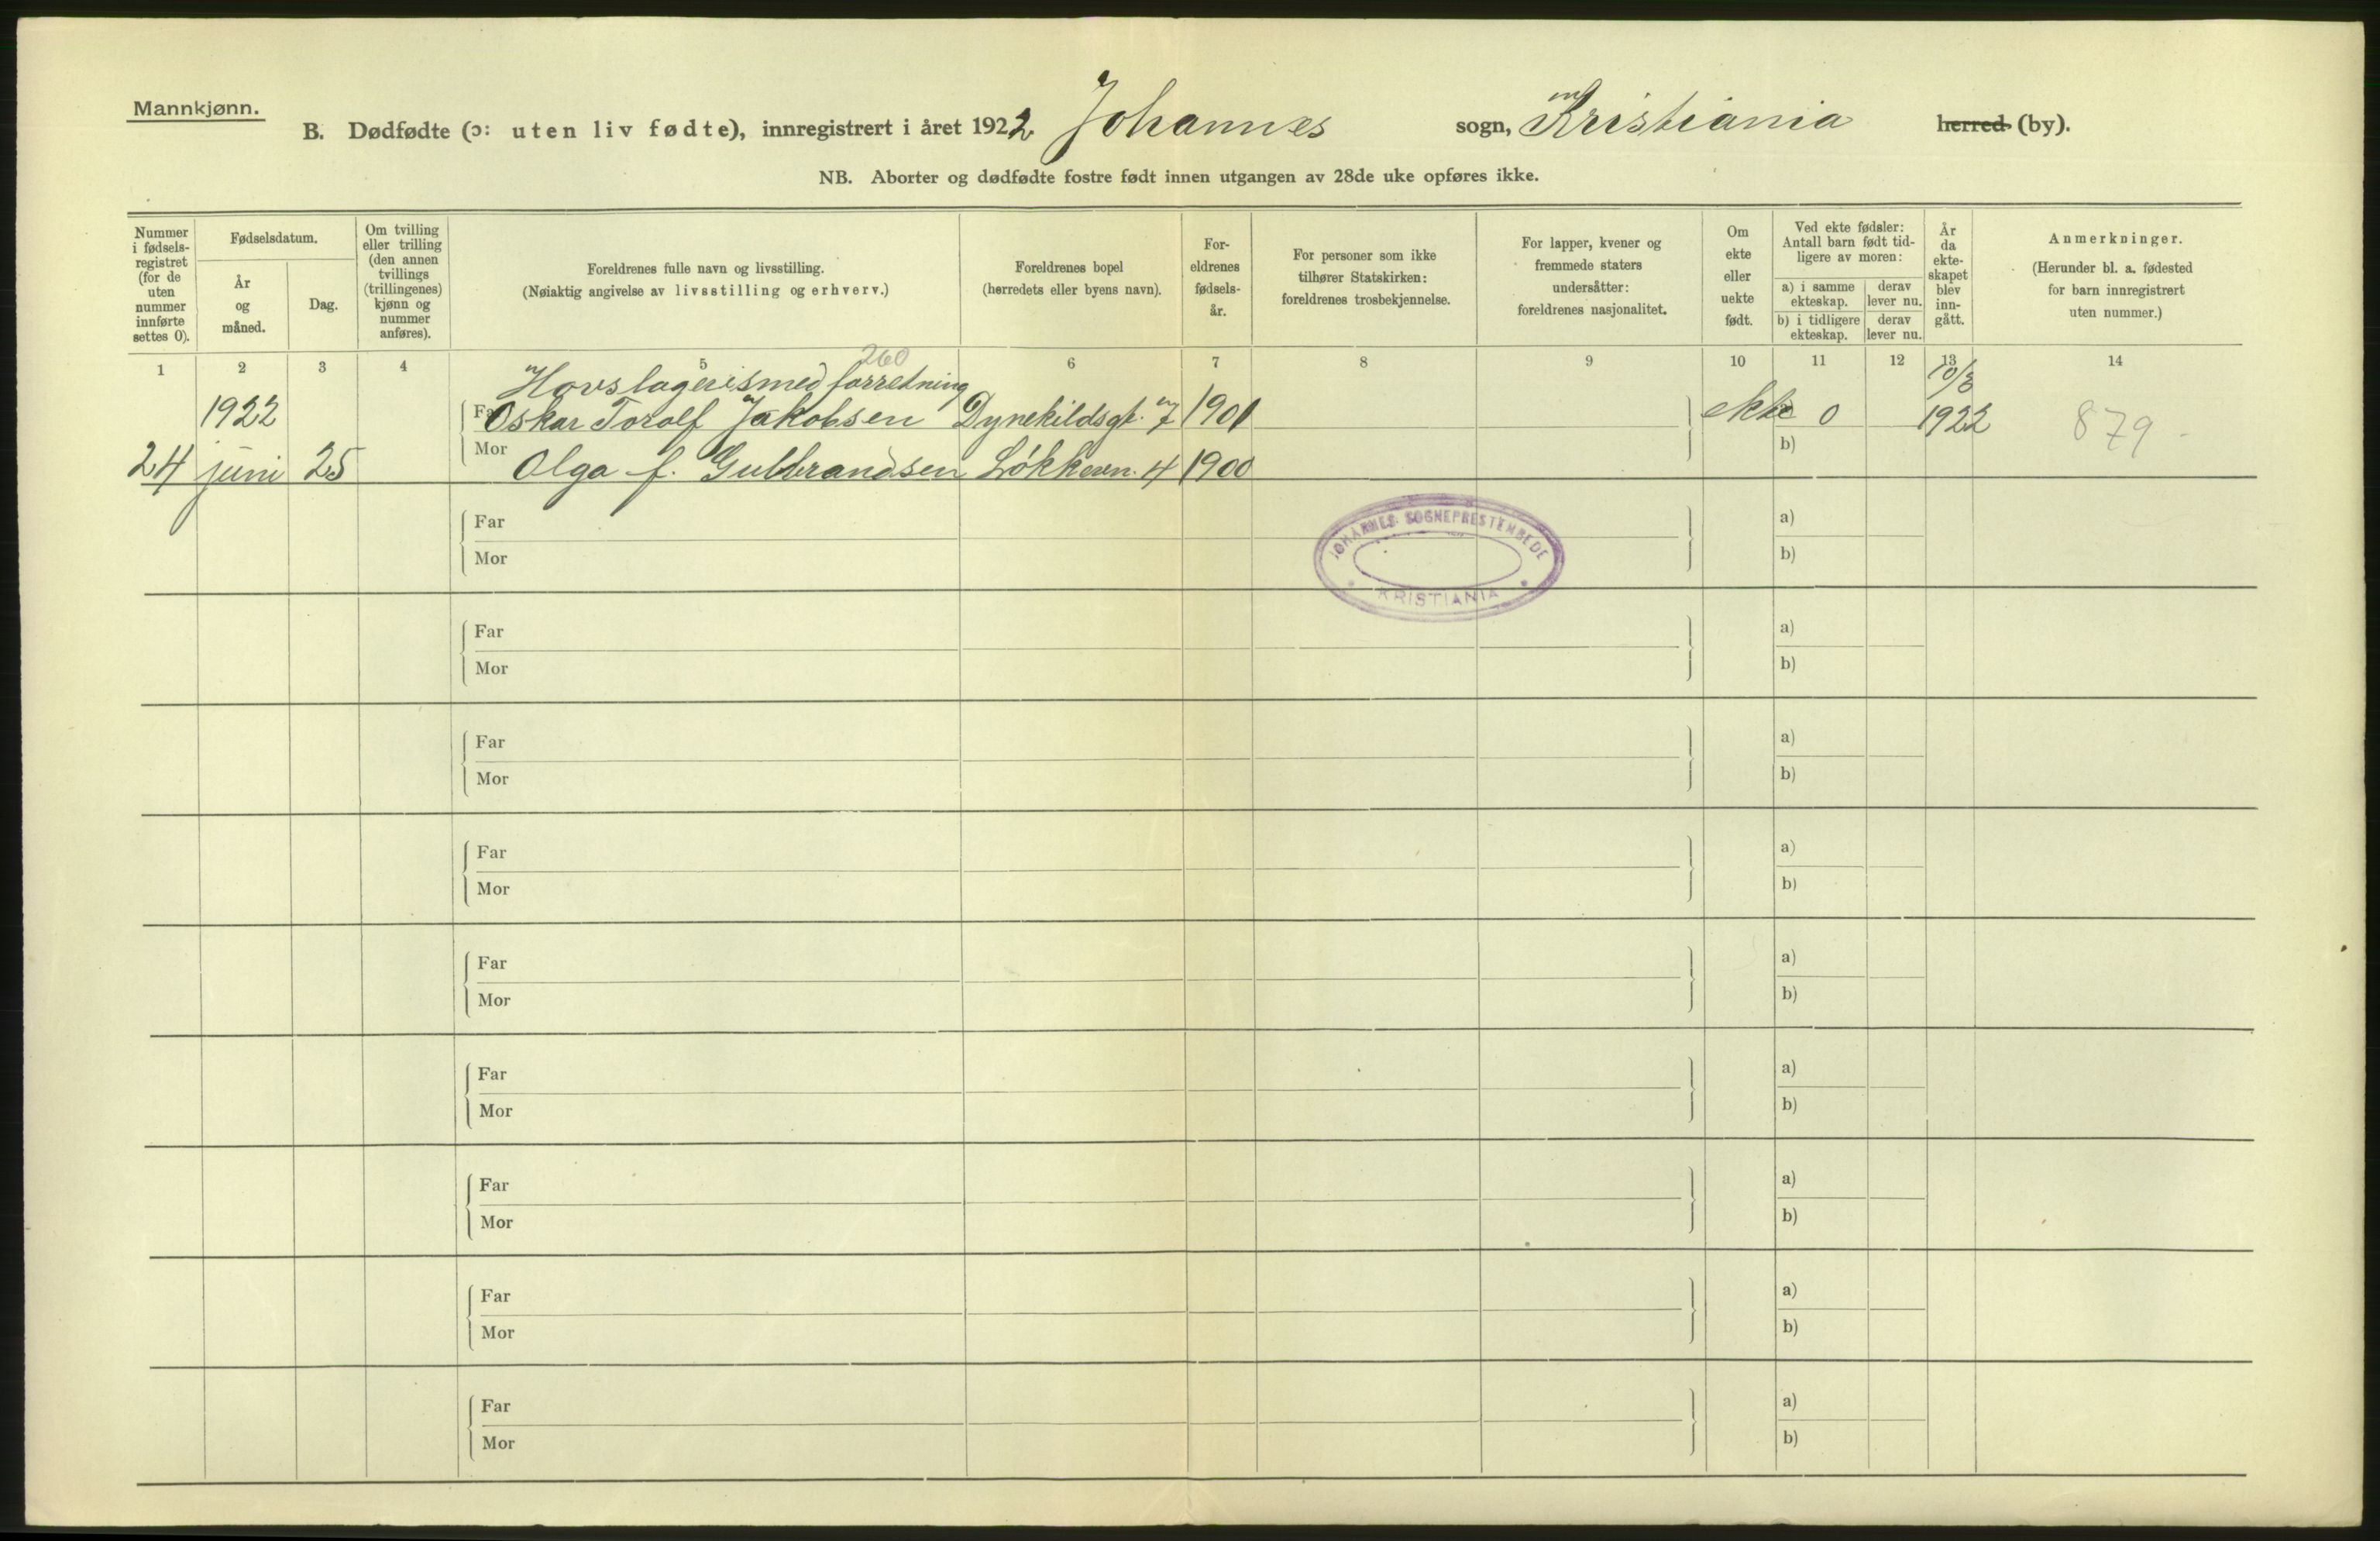 Mannkjønn.
B. Dødfødte (ɔ: uten liv fødte), innregistrert i året 1922 Johannes sogn, Kristiania herred (by).
NB. Aborter og dødfødte fostre født innen utgangen av 28de uke opføres ikke.
Nummer i fødsels-
registret
(for de
uten
nummer
innførte
settes 0).
Fødselsdatum.
År
og
måned.
Dag.
Om tvilling
eller trilling
(den annen
tvillings
(trillingenes)
kjønn og
nummer
anføres).
Foreldrenes fulle navn og livsstilling.
(Nøiaktig angivelse av livsstilling og erhverv.)
Foreldrenes bopel
(herredets eller byens navn).
For-
eldrenes
fødsels-
år.
For personer som ikke
tilhører Statskirken:
foreldrenes trosbekjennelse.
For lapper, kvener og
fremmede staters
undersåtter:
foreldrenes nasjonalitet.
Om
ekte
eller
uekte
født.
Ved ekte fødsler:
Antall barn født tid-
ligere av moren:
a) i samme
ekteskap.
derav
lever nu.
b) i tidligere
ekteskap.
derav
lever nu.
År
da
ekte-
skapet
blev
inn-
gått.
Anmerkninger.
(Herunder bl. a. fødested
for barn innregistrert
uten nummer.)
1 2 3 4 5 6 7 8 9 10 11 12 13 14
260
Hovslagerismedforretning 10/3
1922 Far Oskar Torolf Jakobsen Dynekildsgt. 7 1901 ekte 0 1922 879
24 juni 25 Mor Olga f. Gulbrandsen Løkkevn. 4 1900 b)
JOHANNES SOGNEPRESTEMBEDE
KRISTIANIA
Far a)
Mor b)
Far a)
Mor b)
Far a)
Mor b)
Far a)
Mor b)
Far a)
Mor b)
Far a)
Mor b)
Far a)
Mor b)
Far a)
Mor b)
Far a)
Mor b)